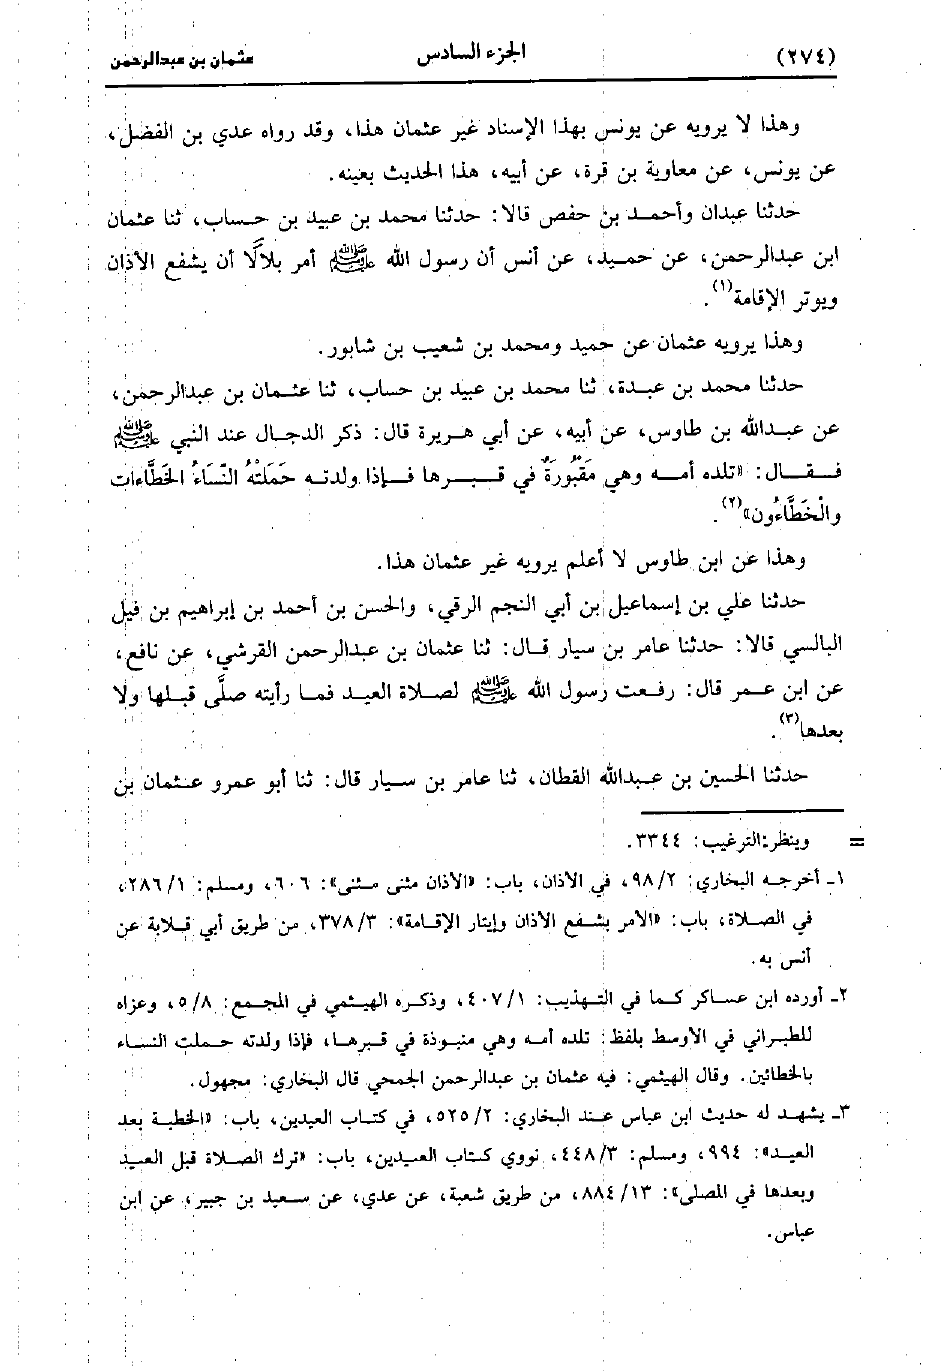 (٢٧٤) الجزء السادس عثمان بن عبدالرحمن
وهذا لا يرويه عن يونس بهذا الإسناد غير عثمان هذا، وقد رواه عدي بن الفضل،
عن يونس، عن معاوية بن قرة، عن أبيه، هذا الحديث بعينه.
حدثنا عبدان وأحمد بن حفص قالا: حدثنا محمد بن عبيد بن حساب، ثنا عثمان
ابن عبدالرحمن، عن حميد، عن أنس أن رسول الله ﷺ أمر بلالًا أن يشفع الأذان
ويوتر الإقامة(١).
وهذا يرويه عثمان عن حميد ومحمد بن شعيب بن شابور.
حدثنا محمد بن عبدة، ثنا محمد بن عبيد بن حساب، ثنا عثمان بن عبدالرحمن،
عن عبدالله بن طاوس، عن أبيه، عن أبي هريرة قال: ذكر الدجال عند النبي ﷺ
فقال: «تلده أمه وهي مَقْبُورَةٌ في قبرها فإذا ولدته حَمَلَتْهُ النِّسَاءُ الخَطَّاءات
والْخَطَّاءُون»(٢).
وهذا عن ابن طاوس لا أعلم يرويه غير عثمان هذا.
حدثنا علي بن إسماعيل بن أبي النجم الرقي، والحسن بن أحمد بن إبراهيم بن فيل
البالسي قالا: حدثنا عامر بن سيار قال: ثنا عثمان بن عبدالرحمن القرشي، عن نافع،
عن ابن عمر قال: رفعت رسول الله ﷺ لصلاة العيد فما رأيته صلَّى قبلها ولا
بعدها(٣).
حدثنا الحسين بن عبدالله القطان، ثنا عامر بن سيار قال: ثنا أبو عمرو عثمان بن
= وينظر: الترغيب: ٣٣٤٤.
١- أخرجه البخاري: ٩٨/٢، في الأذان، باب: «الأذان مثنى مثنى»: ٦٠٦، ومسلم: ٢٨٦/١،
في الصلاة، باب: «الأمر بشفع الأذان وإيتار الإقامة»: ٣٧٨/٣، من طريق أبي قلابة عن
أنس به.
٢- أورده ابن عساكر كما في التهذيب: ٤٠٧/١، وذكره الهيثمي في المجمع: ٥/٨، وعزاه
للطبراني في الأوسط بلفظ: تلده أمه وهي منبوذة في قبرها، فإذا ولدته حملت النساء
بالخطائين. وقال الهيثمي: فيه عثمان بن عبدالرحمن الجمحي قال البخاري: مجهول.
٣- يشهد له حديث ابن عباس عند البخاري: ٥٢٥/٢، في كتاب العيدين، باب: «الخطبة بعد
العيد»: ٩٩٤، ومسلم: ٤٤٨/٣، نووي كتاب العيدين، باب: «ترك الصلاة قبل العيد
وبعدها في المصلى»: ٨٨٤/١٣، من طريق شعبة، عن عدي، عن سعيد بن جبير، عن ابن
عباس.